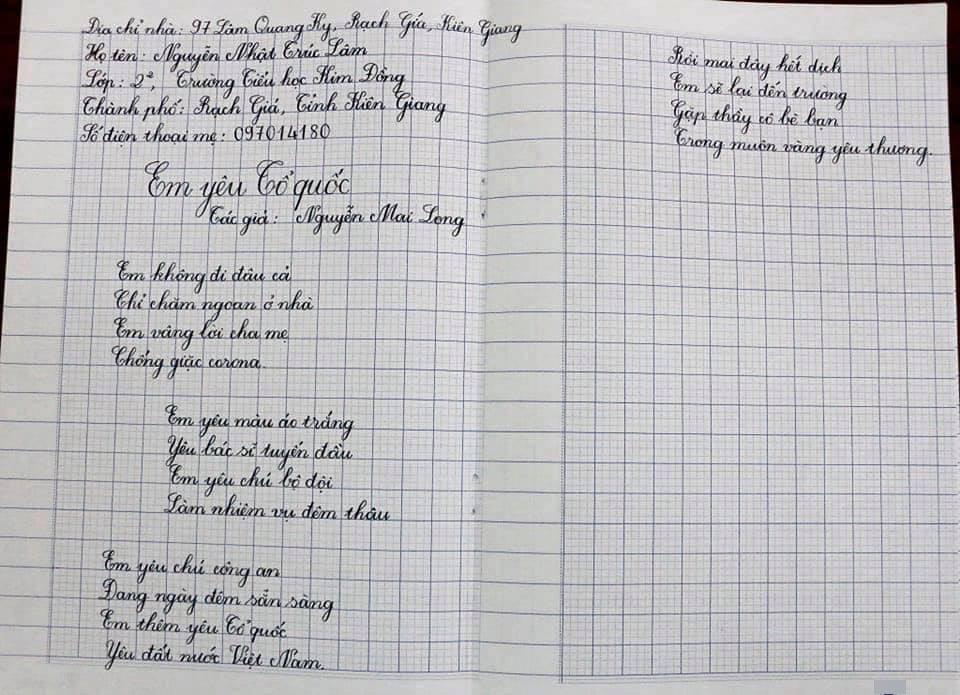 Địa chỉ nhà: 97 Lâm Quang Ky, Rạch Giá, Kiên Giang
Họ tên: Nguyễn Nhật Trúc Lâm
Lớp: 2², Trường Tiểu học Kim Đồng
Thành phố: Rạch Giá, Tỉnh Kiên Giang
Số điện thoại mẹ: 097014180
Em yêu Tổ quốc
Tác giả: Nguyễn Mai Long
Em không đi đâu cả
Chỉ chăm ngoan ở nhà
Em vâng lời cha mẹ
Chống giặc corona.
Em yêu màu áo trắng
Yêu bác sĩ tuyến đầu
Em yêu chú bộ đội
Làm nhiệm vụ đêm thâu
Em yêu chú công an
Đang ngày đêm sẵn sàng
Em thêm yêu Tổ quốc
Yêu đất nước Việt Nam.
Rồi mai đây hết dịch
Em sẽ lại đến trường
Gặp thầy cô bè bạn
Trong muôn vàng yêu thương.